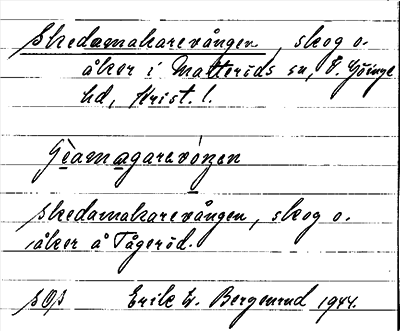 Skedamakarevången, skog o.
åker i Matteröds sn, V. Göinge
hd, Krist. l.
Gèamagarevóŋen
Skedamakarevången, skog o.
åker å Tågeröd.
SOS Erik W. Bergenrud 1944.